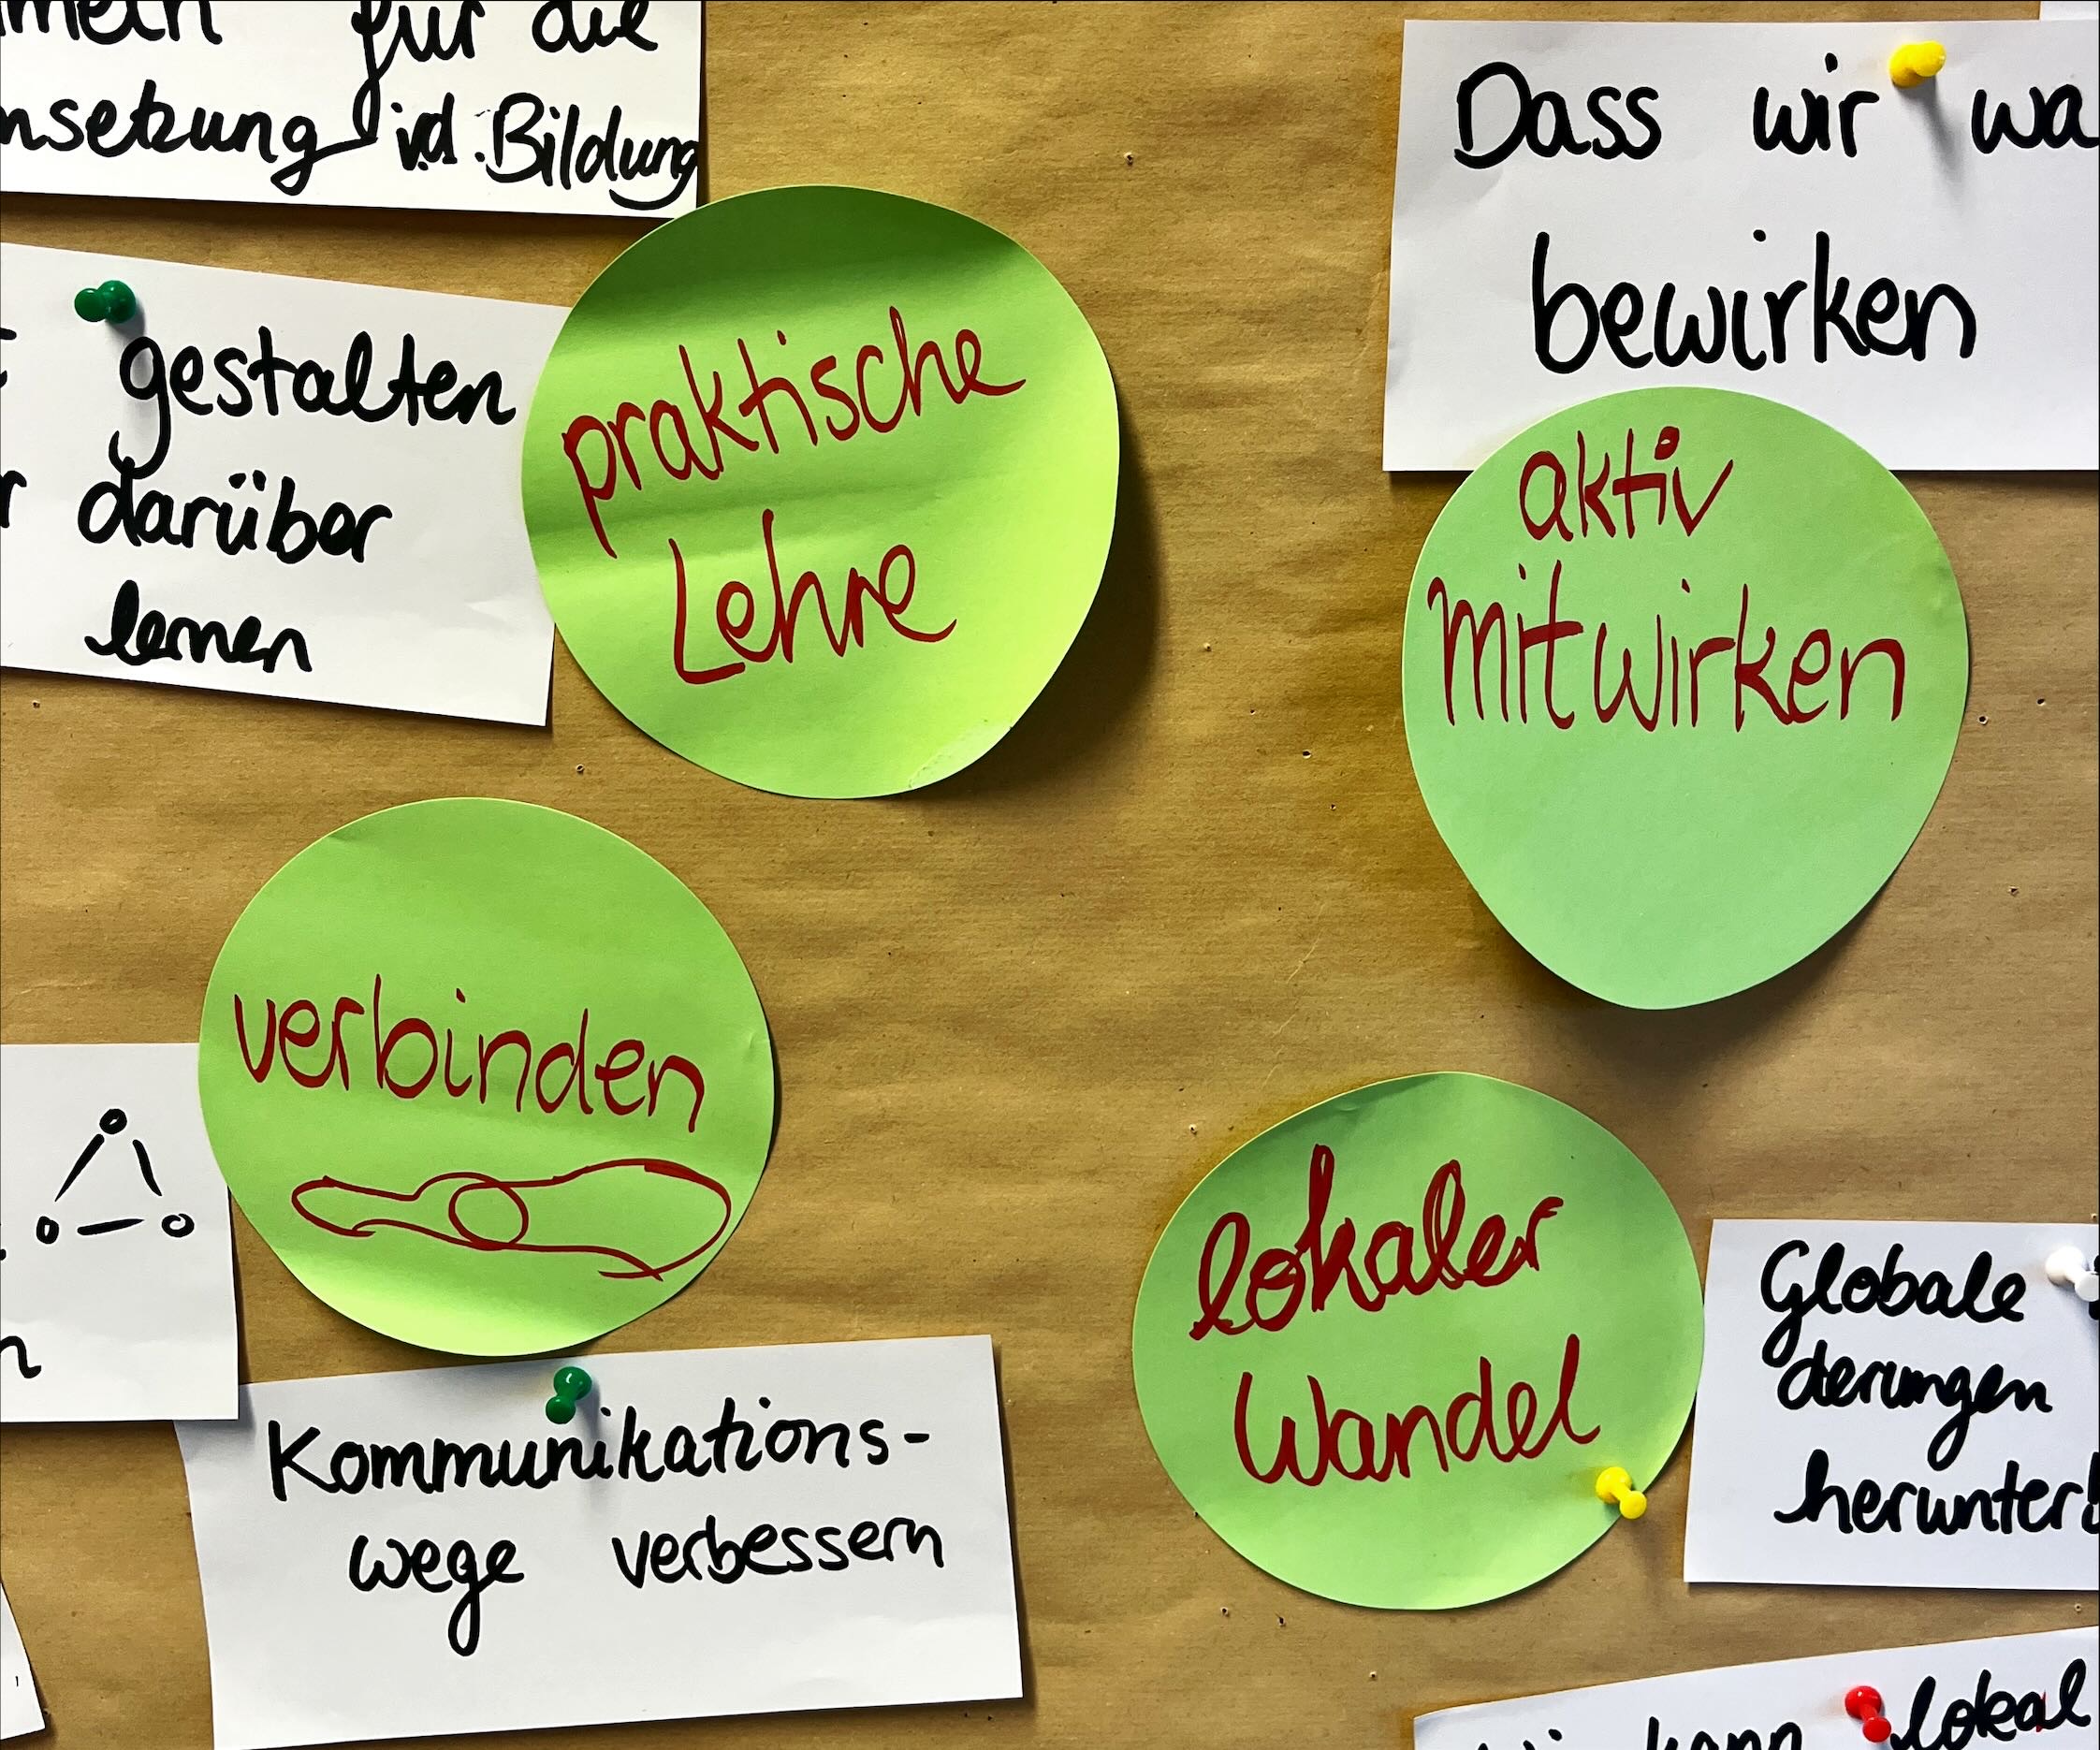 für die
i.d. Bildung
gestalten
darüber
lernen
praktische
Lehre
Dass wir
bewirken
aktiv
mitwirken
verbinden
Kommunikations-
wege verbessern
lokaler
Wandel
Globale
derungen
herunter
kann lokal